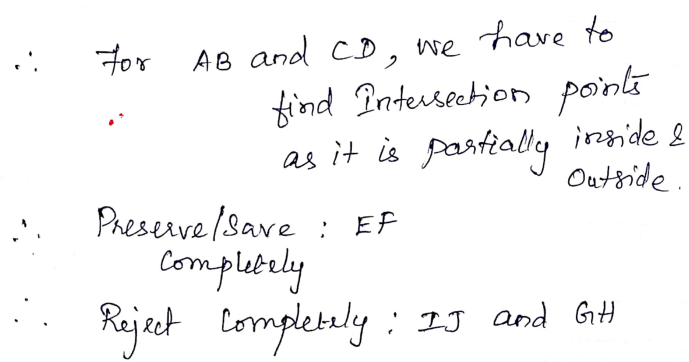 ∴ For AB and CD, we have to
find Intersection points
as it is partially inside &
Outside.
∴ Preserve/Save : EF
Completely
∴ Reject Completely : IJ and GH